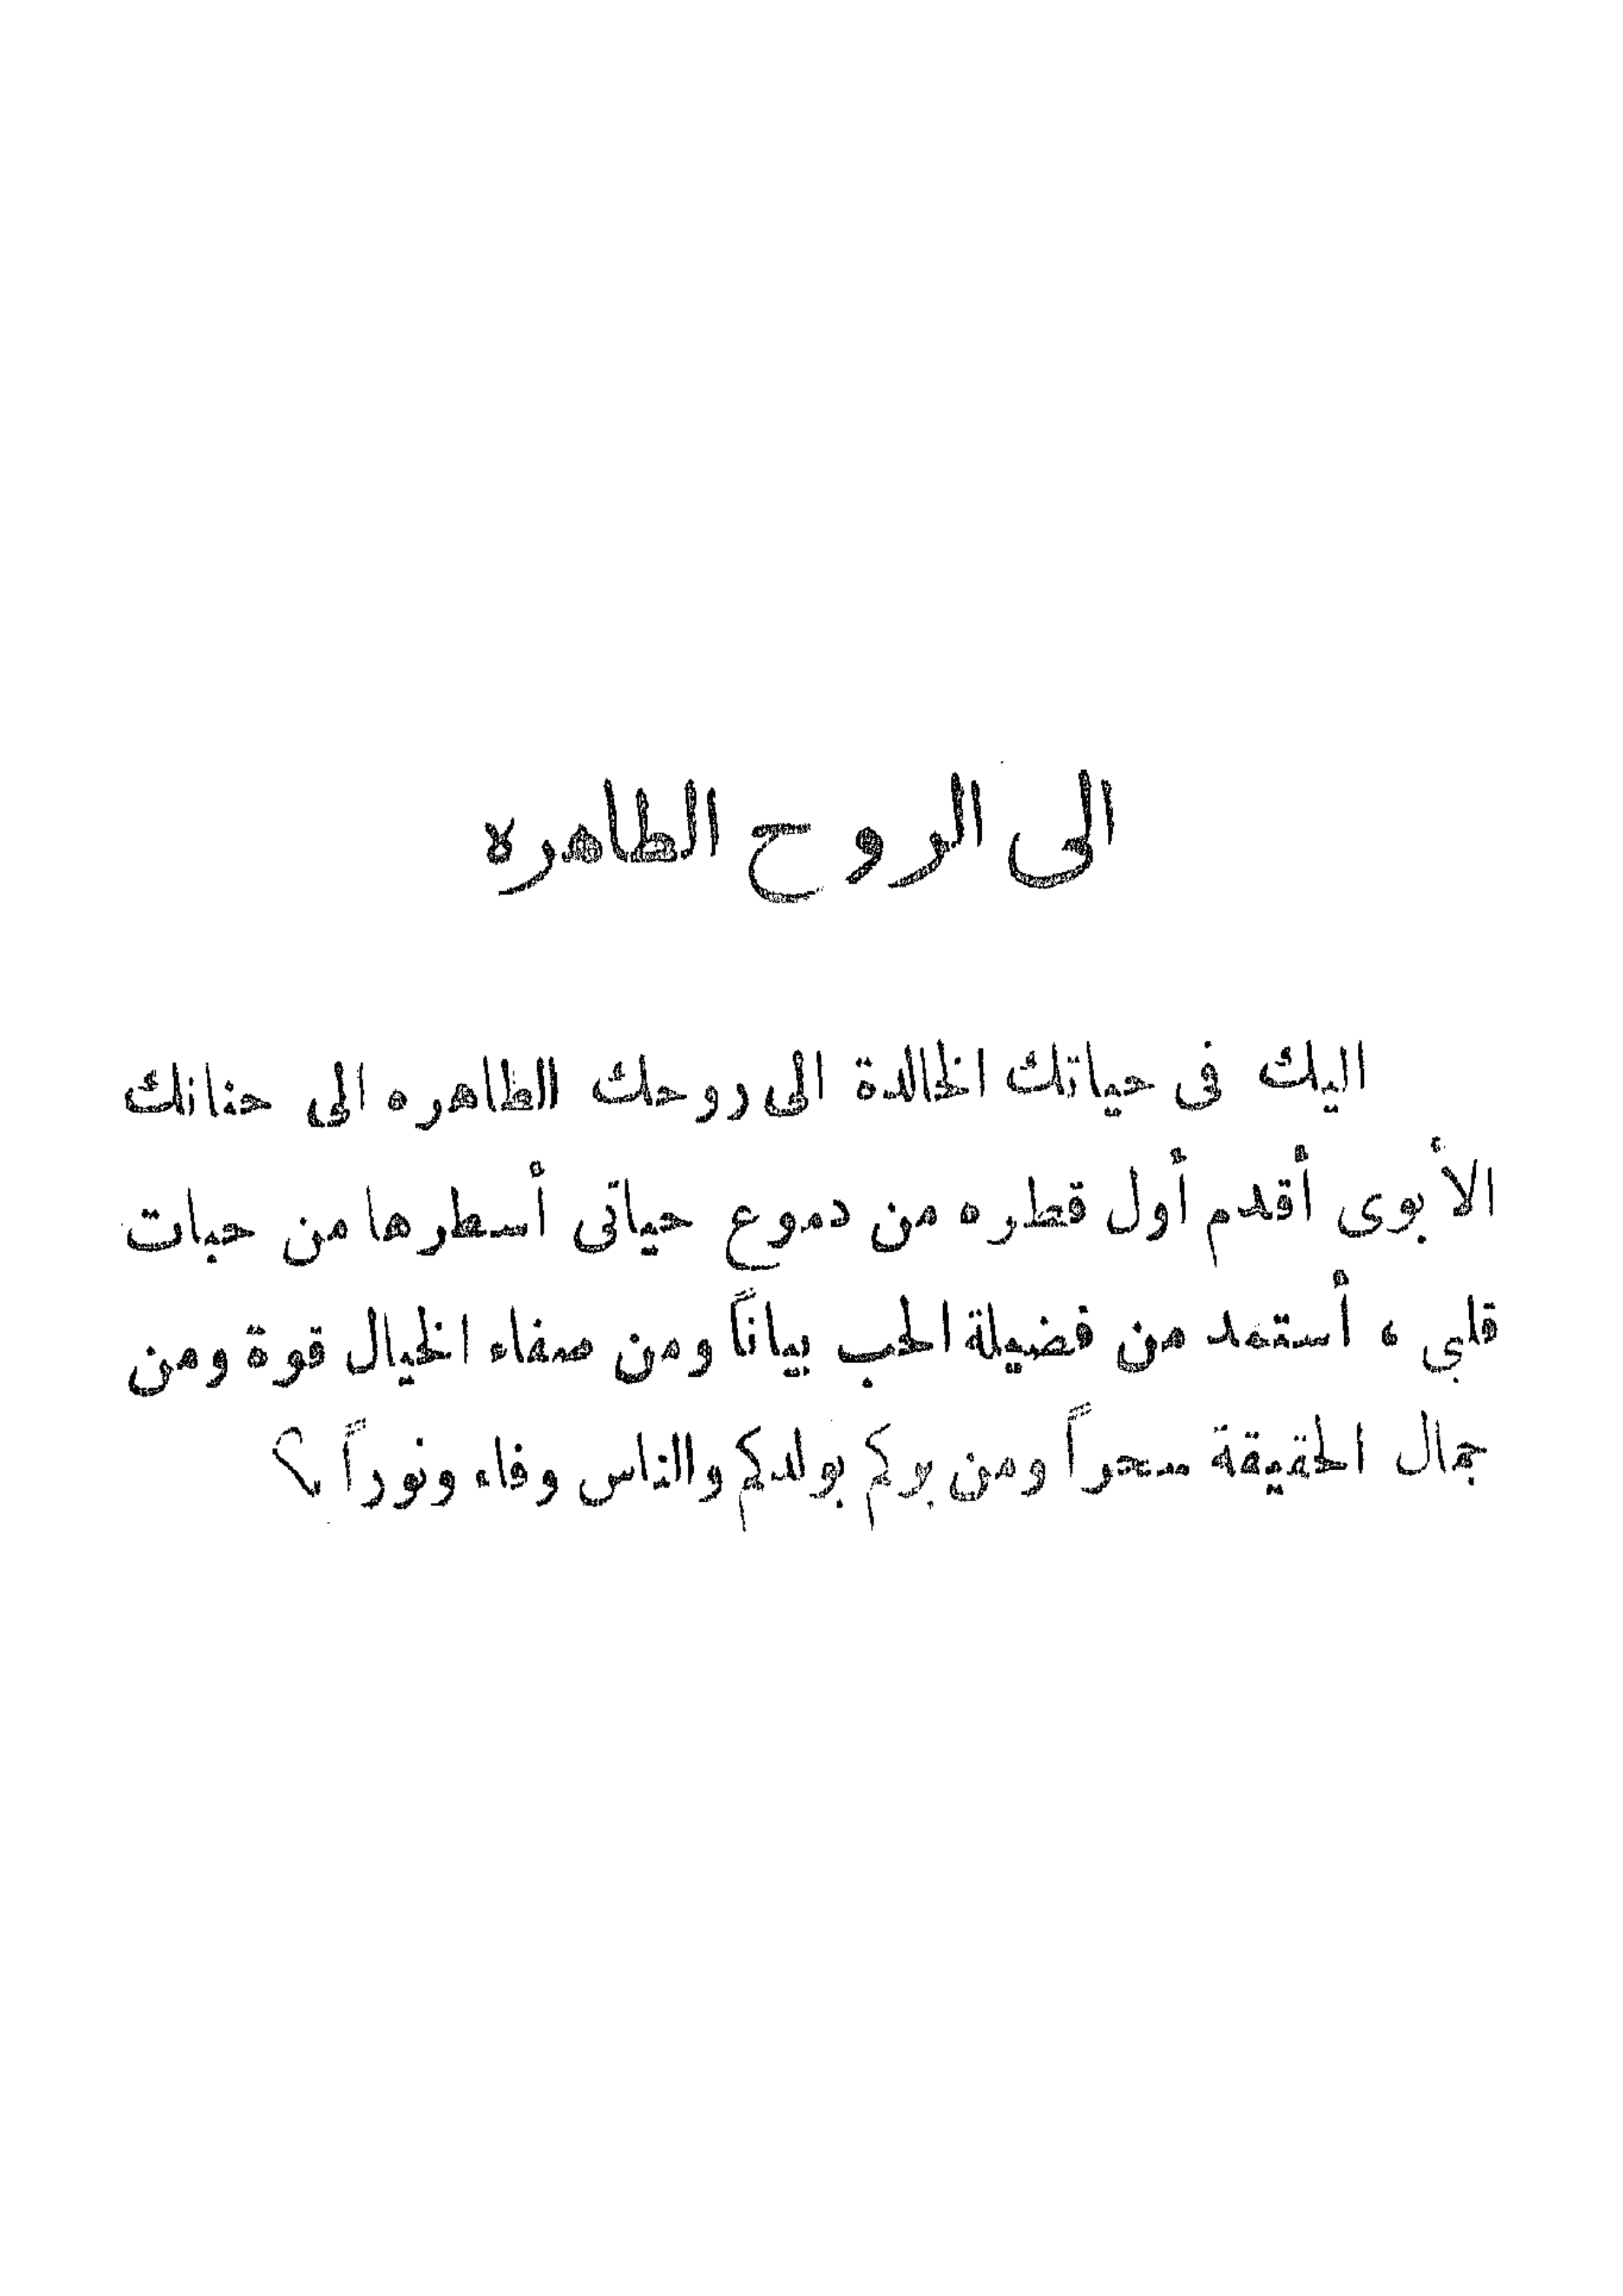 الى الروح الطاهره
اليك فى حياتك الخالدة الى روحك الطاهره الى حنانك
الأبوى أقدم أول قطره من دموع حياتى أسطرها من حبات
قلبي ، أستمد من فضيلة الحب بياناً ومن صفاء الخيال قوة ومن
جمال الحقيقة سحراً ومن بركم بولدكم والناس وفاء ونوراً ؟